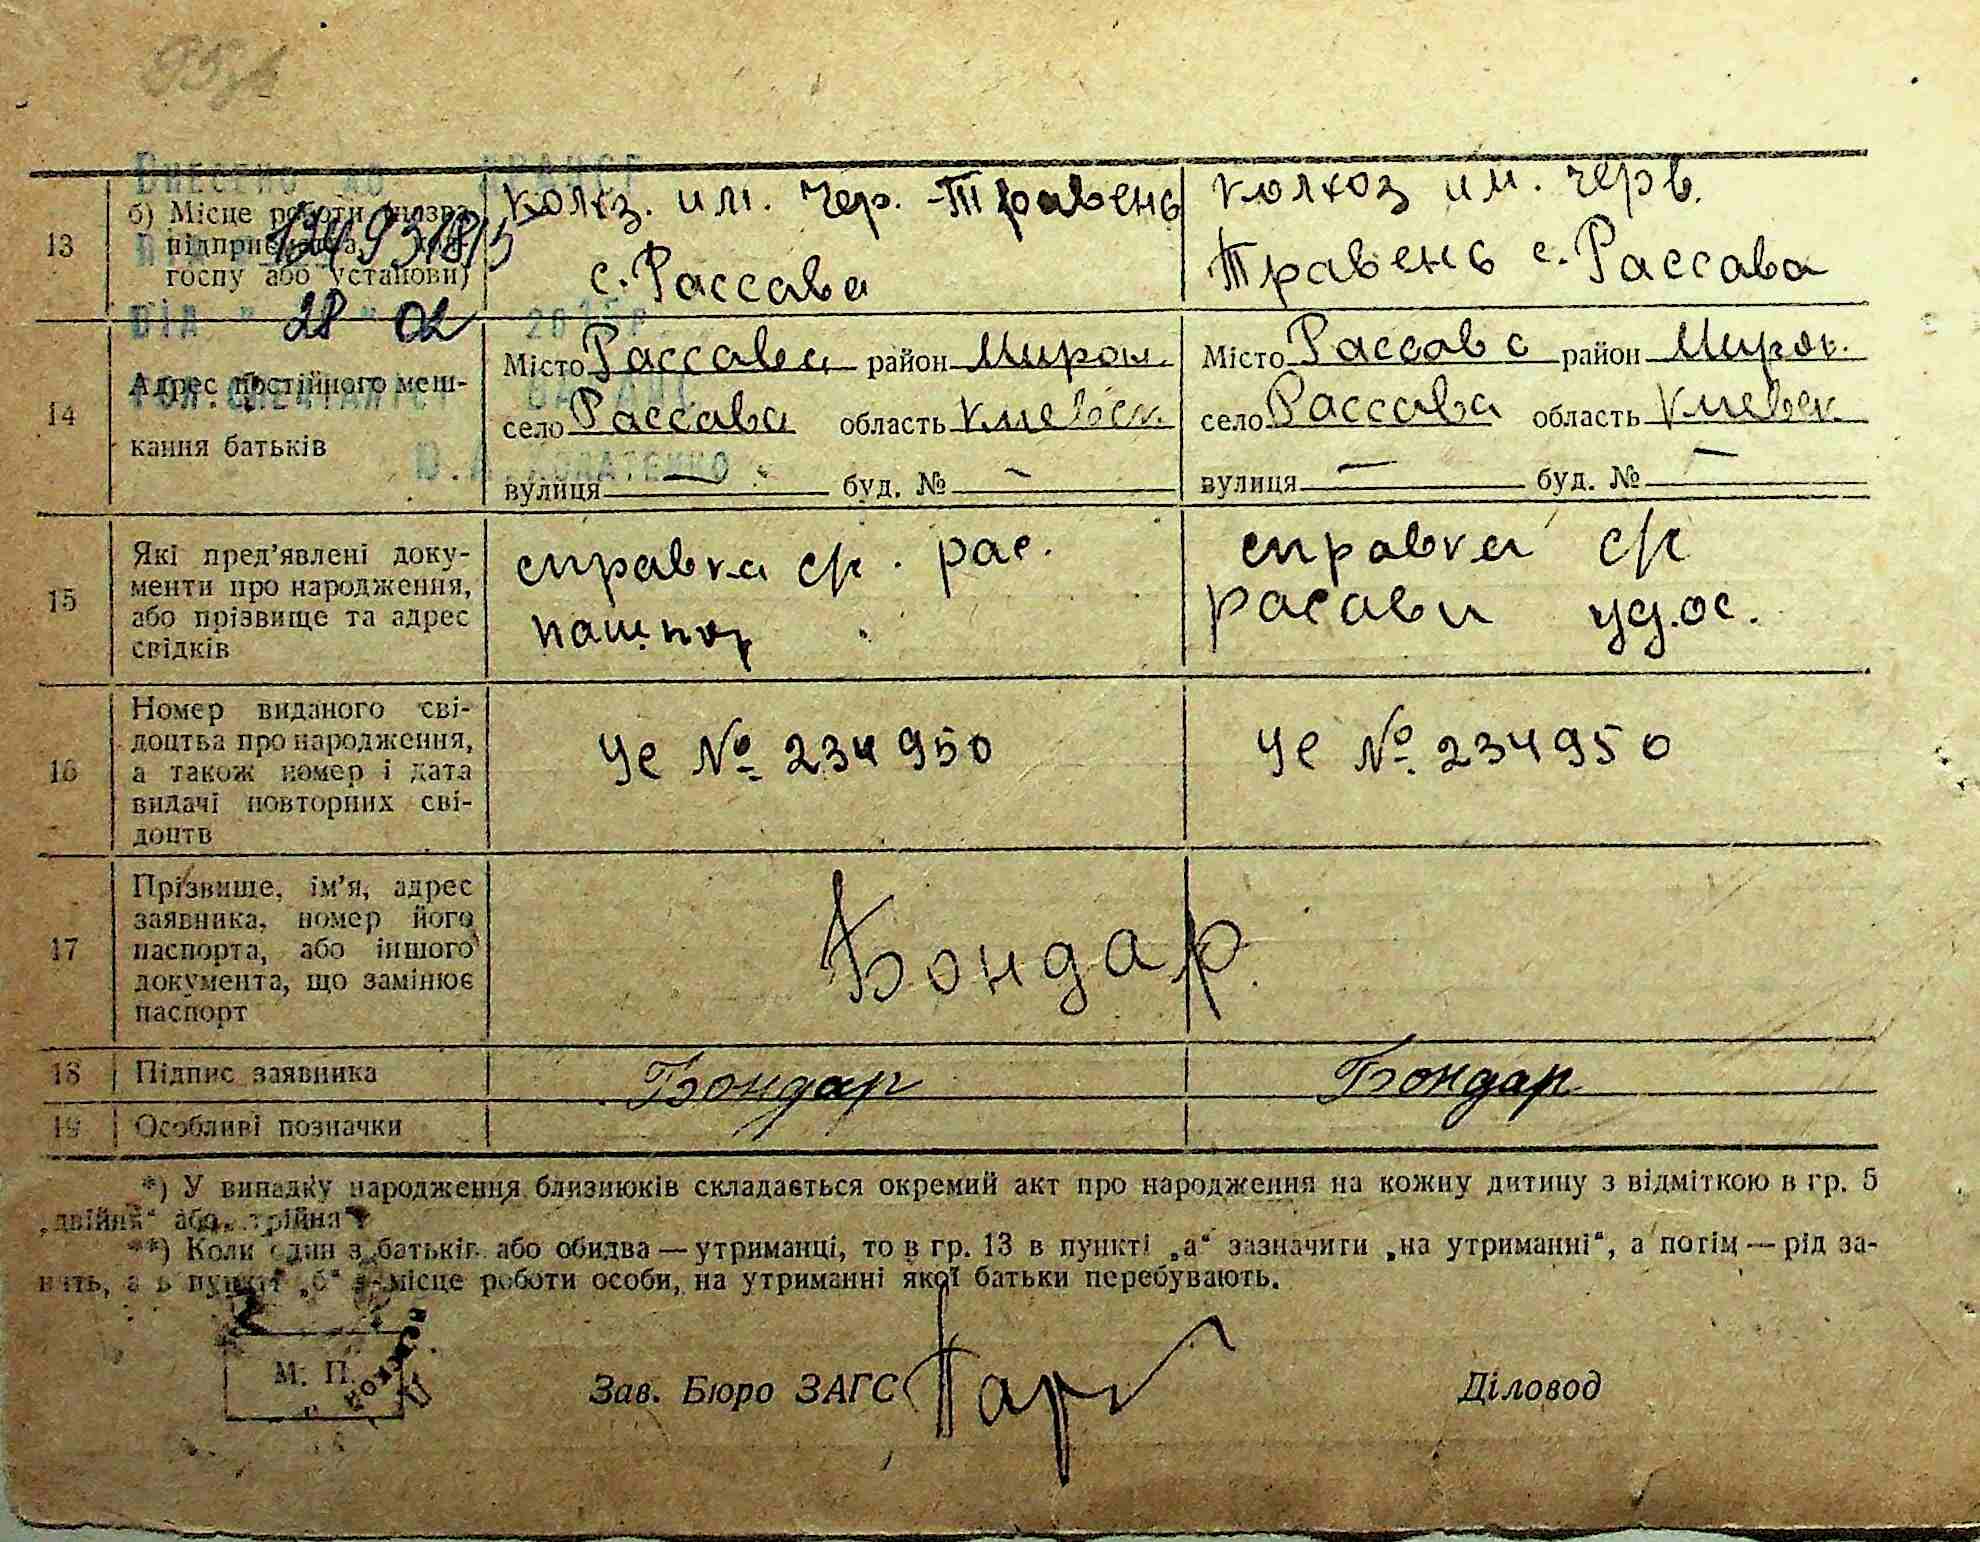 Внесено до
13
б) Місце роботи (назва підприємства, госпу або установи)
13493185
Колхз. им. Чер. - Травень
с. Рассава
колхоз им. черв.
Травень с. Рассава
від " 28 " 02 2015р
14
Адрес постійного меш-
кання батьків
Місто Рассава район Мирон.
село Рассава область Киевск.
вулиця — буд. № —
Місто Рассава район Мирон.
село Рассава область Киевск
вулиця — буд. № —
15
Які пред'явлені доку-
менти про народження,
або прізвище та адрес
свідків
справка с/р. рас.
пашпор
справка с/р
расави уд.ос.
16
Номер виданого сві-
доцтва про народження,
а також номер і дата
видачі повторних сві-
доцтв
УС № 234950
УС № 234950
17
Прізвище, ім'я, адрес
заявника, номер його
паспорта, або іншого
документа, що замінює
паспорт
Бондар.
18
Підпис заявника
Бондар
Бондар
19
Особливі позначки
*) У випадку народження близнюків складається окремий акт про народження на кожну дитину з відміткою в гр. 5
„двійня“ або „трійня“.
**) Коли один з батьків або обидва — утриманці, то в гр. 13 в пункті „а“ зазначити „на утриманні“, а потім — рід за-
нять, а в пункті „б“ — місце роботи особи, на утриманні якої батьки перебувають.
М. П.
Зав. Бюро ЗАГС
Діловод